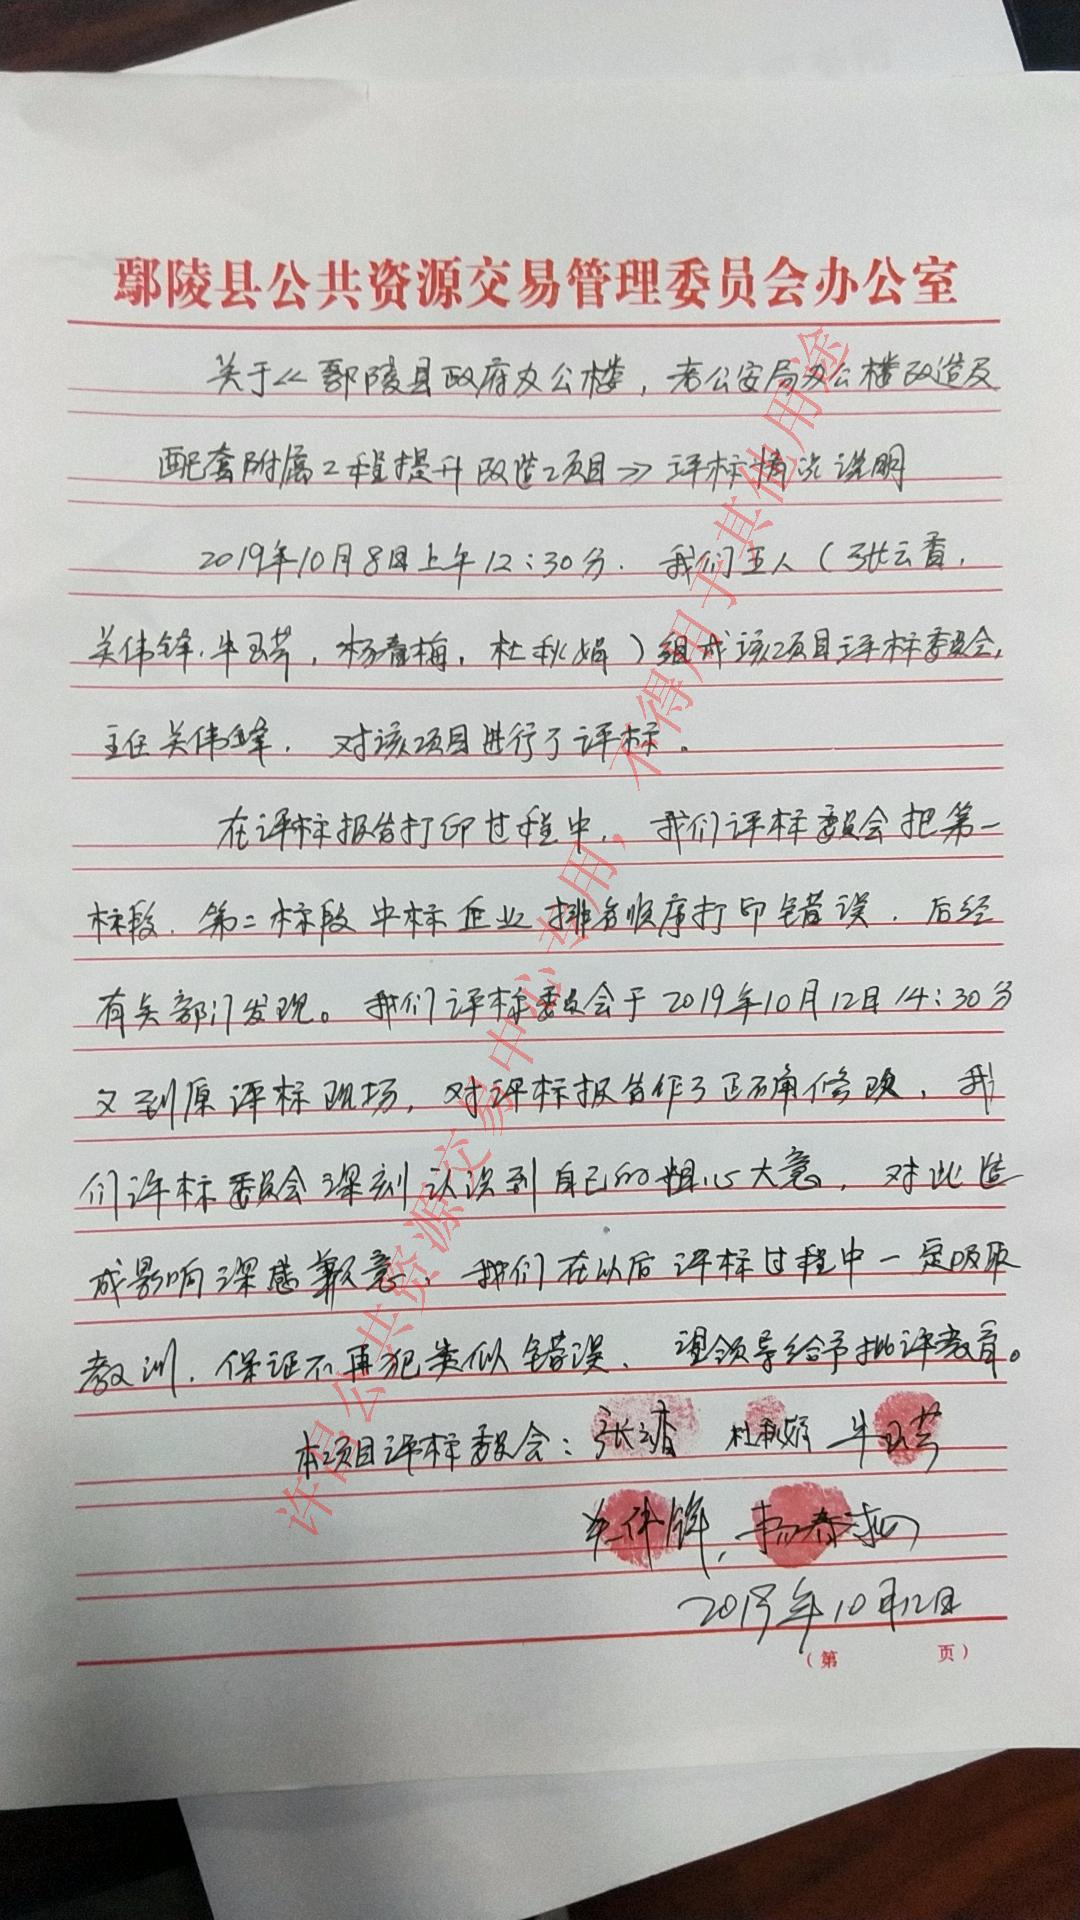 鄢陵县公共资源交易管理委员会办公室
关于《鄢陵县政府办公楼，老公安局办公楼改造及
配套附属工程提升改造项目》评标情况说明
2019年10月8日上午12:30分，我们五人（张云香，
关伟锋，牛玉芹，杨春梅，杜秋娟）组成该项目评标委员会，
主任关伟峰，对该项目进行了评标。
在评标报告打印过程中，我们评标委员会把第一
标段、第二标段中标企业排名顺序打印错误，后经
有关部门发现。我们评标委员会于2019年10月12日14:30分
又到原评标现场，对评标报告作了正确修改，我
们评标委员会深刻认识到自己的粗心大意，对此造
成影响深感歉意，我们在以后评标过程中一定吸取
教训，保证不再犯类似错误，望领导给予批评教育。
本项目评标委员会：张云香 杜秋娟 牛玉芹
关伟锋，杨春梅
2019年10月12日
（第 页）
许昌公共资源交易中心专用，不得用于其他用途